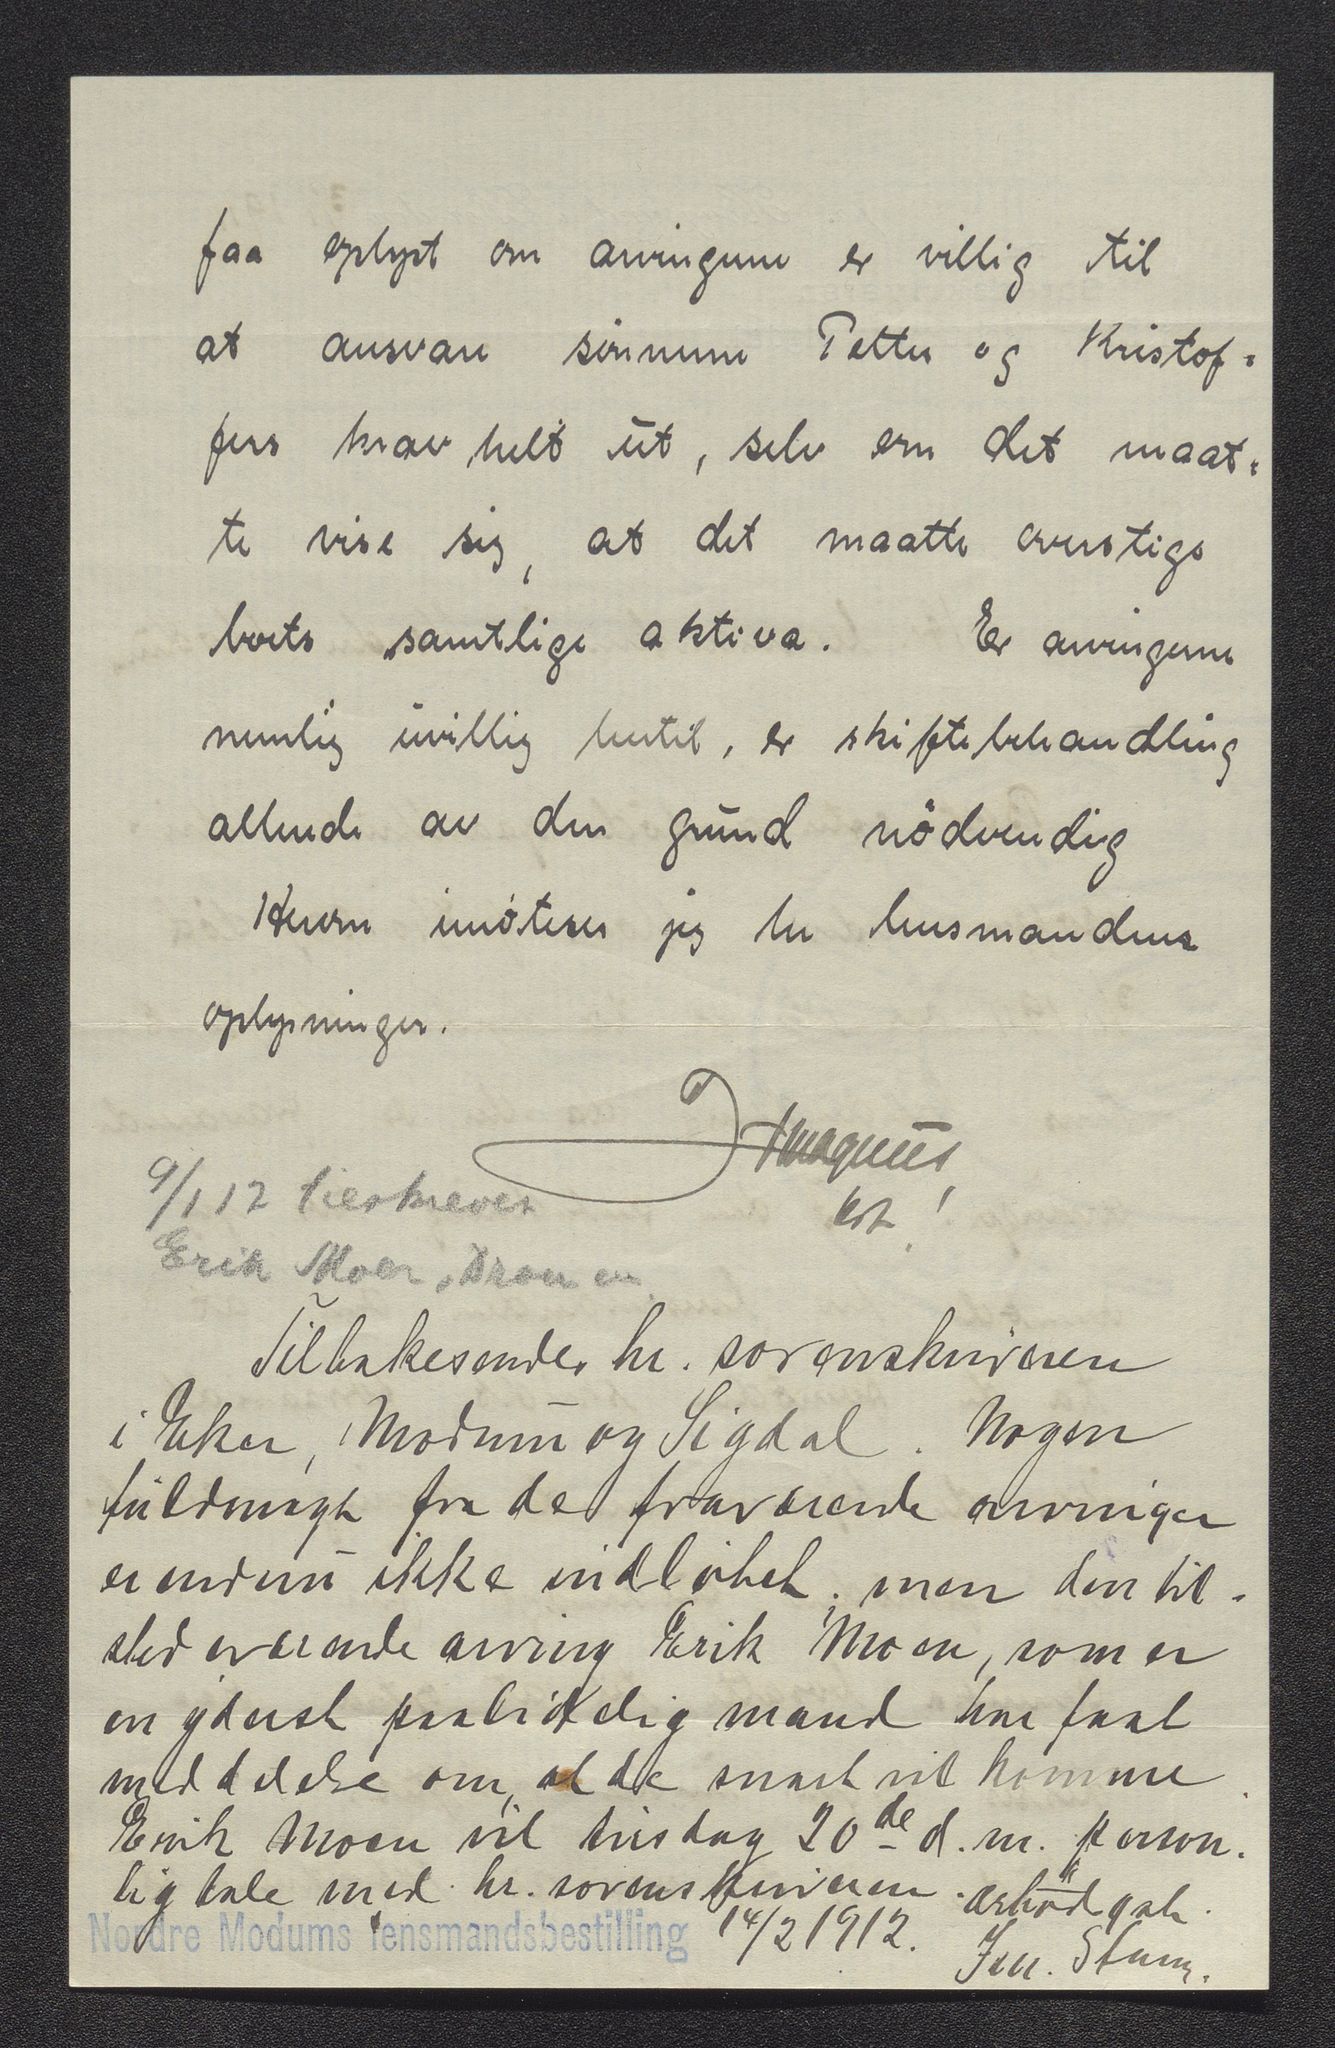 faa oplyst om arvingene er villig til
at ansvare sönnene Petter og Kristof-
fers krav helt ut, selv om det maat-
te vise sig, at det maatte overstige
boets samtlige aktiva. Er arvingene
nemlig uvillig hertil, er skiftebehandling
allerede av den grund nödvendig
Herom imöteser jeg hr lensmandens
oplysninger.
Magnus
kst.
9/1 12 tilskrevet
Erik Moen, Dramen
Tilbakesendes hr. sorenskriveren
i Eker, Modum og Sigdal. Nogen
fuldmagt fra de fraværende arvinger
er endnu ikke indløbet, men den til-
stedeværende arving Erik Moen, som er
en yderst paalidelig mand har faat
meddelelse om, at de snart vil komme
Erik Moen vil tirsdag 20de d.m. person-
lig tale med hr. sorenskriveren.
Nordre Modums lensmandsbestilling 14/2 1912. ærbødigst.
Sturm.